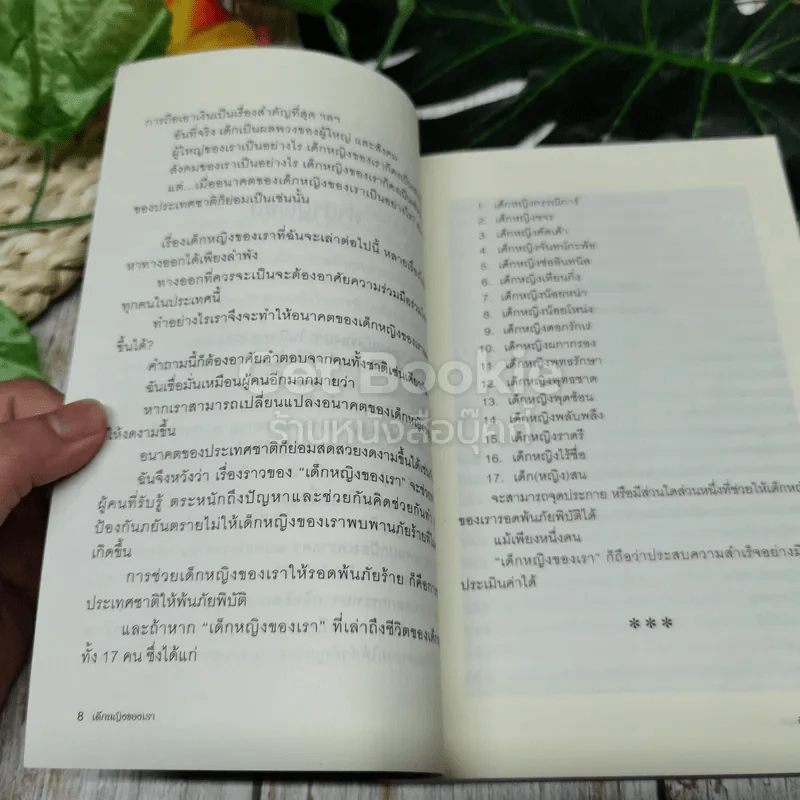 การถือเอาเงินเป็นเรื่องสำคัญที่สุด ฯลฯ
อันที่จริง เด็กเป็นผลพวงของผู้ใหญ่ และสังคม
ผู้ใหญ่ของเราเป็นอย่างไร เด็กหญิงของเราก็
สังคมของเราเป็นอย่างไร เด็กหญิงของเราก็
แต่...เมื่ออนาคตของเด็กหญิงของเราเป็นอย่างไร
ของประเทศชาติก็ย่อมเป็นเช่นนั้น
เรื่องเด็กหญิงของเราที่ฉันจะเล่าต่อไปนี้ หลาย
หาทางออกได้เพียงลำพัง
ทางออกที่ควรจะเป็นจะต้องอาศัยความร่วมมือ
ทุกคนในประเทศนี้
ทำอย่างไรเราจึงจะทำให้อนาคตของเด็กหญิงของเรา
ขึ้นได้?
คำถามนี้ก็ต้องอาศัยคำตอบจากคนทั้งชาติเช่น
ฉันเชื่อมั่นเหมือนผู้คนอีกมากมายว่า
หากเราสามารถเปลี่ยนแปลงอนาคตของเด็กหญิง
ให้งดงามขึ้น
อนาคตของประเทศชาติก็ย่อมสดสวยงดงามขึ้นได้
ฉันจึงหวังว่า เรื่องราวของ “เด็กหญิงของเรา” จะช่วย
ผู้คนที่รับรู้ ตระหนักถึงปัญหาและช่วยกันคิดช่วยกัน
ป้องกันภยันตรายไม่ให้เด็กหญิงของเราพบพานภัยร้าย
เกิดขึ้น
การช่วยเด็กหญิงของเราให้รอดพ้นภัยร้าย ก็คือ
ประเทศชาติให้พ้นภัยพิบัติ
และถ้าหาก “เด็กหญิงของเรา” ที่เล่าถึงชีวิตของเด็ก
ทั้ง 17 คน ซึ่งได้แก่
8 เด็กหญิงของเรา
1. เด็กหญิงกรรณิการ์
2. เด็กหญิงขจร
3. เด็กหญิงคัดเค้า
4. เด็กหญิงจันทน์กะพ้อ
5. เด็กหญิงช่ออินทนิล
6. เด็กหญิงเทียนกิ่ง
7. เด็กหญิงน้อยหน่า
8. เด็กหญิงน้อยโหน่ง
9. เด็กหญิงดอกรักเร่
10. เด็กหญิงผกากรอง
11. เด็กหญิงพุทธรักษา
12. เด็กหญิงพุทธชาด
13. เด็กหญิงพุดซ้อน
14. เด็กหญิงพลับพลึง
15. เด็กหญิงราตรี
16. เด็กหญิงไร้ชื่อ
17. เด็ก(หญิง)สน
จะสามารถจุดประกาย หรือมีส่วนใดส่วนหนึ่งที่ช่วยให้เด็กหญิง
ของเรารอดพ้นภัยพิบัติได้
แม้เพียงหนึ่งคน
“เด็กหญิงของเรา” ก็ถือว่าประสบความสำเร็จอย่างมิ
ประเมินค่าได้
***
Get Bookie
ร้านหนังสือบุ๊คกี้